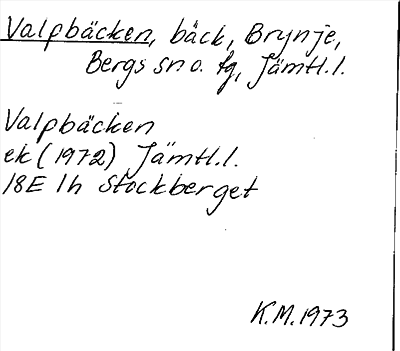 Valpbäcken, bäck, Brynje,
Bergs sn o. tg, Jämtl.l.
Valpbäcken
ek (1972) Jämtl.l.
18E 1h Stockberget
K.M. 1973